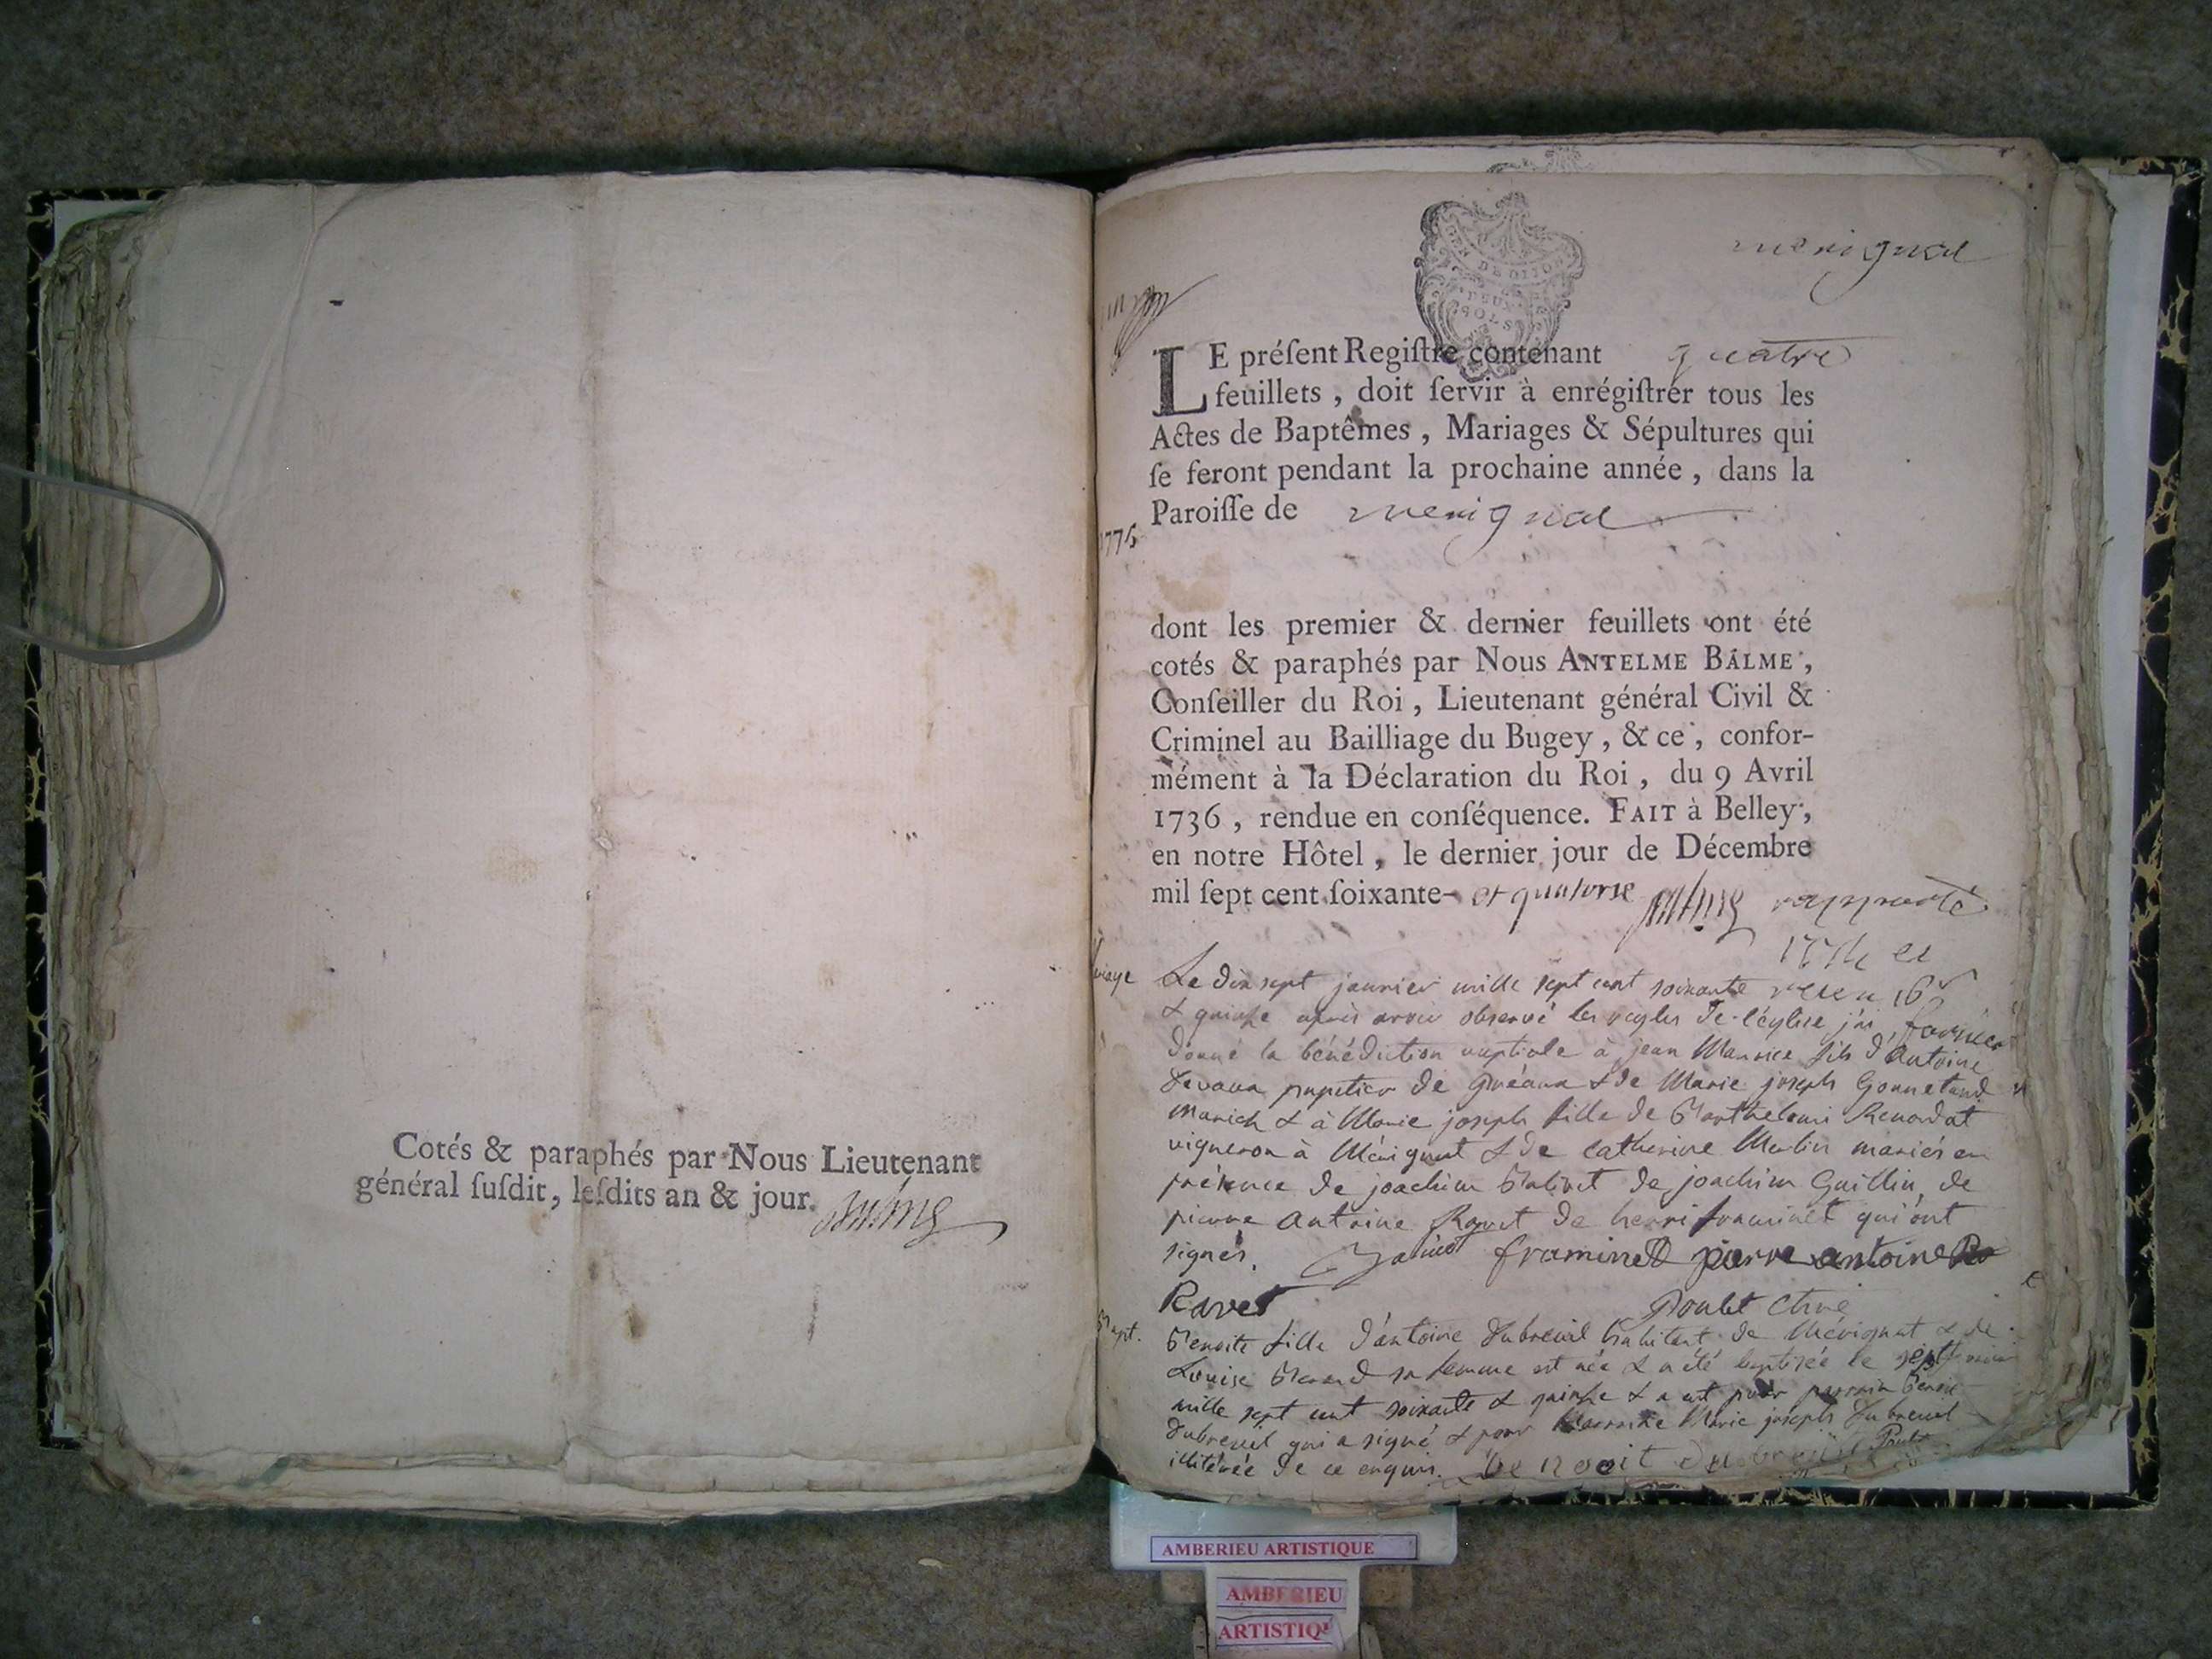 Cotés & paraphés par Nous Lieutenant
général ſuſdit, leſdits an & jour.
merignat
LE préſent Regiſtre contenant quatre
feuillets, doit ſervir à enrégiſtrer tous les
Actes de Baptêmes, Mariages & Sépultures qui
ſe feront pendant la prochaine année, dans la
Paroiſſe de merignat
1775
dont les premier & dernier feuillets ont été
cotés & paraphés par Nous ANTELME BALME,
Conſeiller du Roi, Lieutenant général Civil &
Criminel au Bailliage du Bugey, & ce, confor-
mément à la Déclaration du Roi, du 9 Avril
1736, rendue en conſéquence. FAIT à Belley,
en notre Hôtel, le dernier jour de Décembre
mil ſept cent ſoixante- et quatorse
Le dix sept janvier mille sept cent soixante
& quinze après avoir observé les regles de l'église j'ai
donné la bénédiction nuptiale à jean Maurice fils d'Antoine
papetier de & de Marie joseph
& à Marie joseph fille de Barthelemi Renardat
vigneron à Mérignat & de catherine Merlin mariés en
présence de joachim de joachim Guillin, de
pierre Antoine Ravet de henri framinet qui ont
signés. framinet pierre antoine
Ravet Poulet Curé
Bapt.
Benoite fille d'antoine Dubreuil habitant de Mérignat & de
Louise sa femme est née & a été baptisée le sept
mille sept cent soixante & quinze & a eut pour parrain Benoit
Dubreuil qui a signé & pour Marraine Marie joseph Dubreuil
illitérée de ce enquis. Benoit Dubreuil
AMBERIEU ARTISTIQUE
AMBERIEU
ARTISTIQ